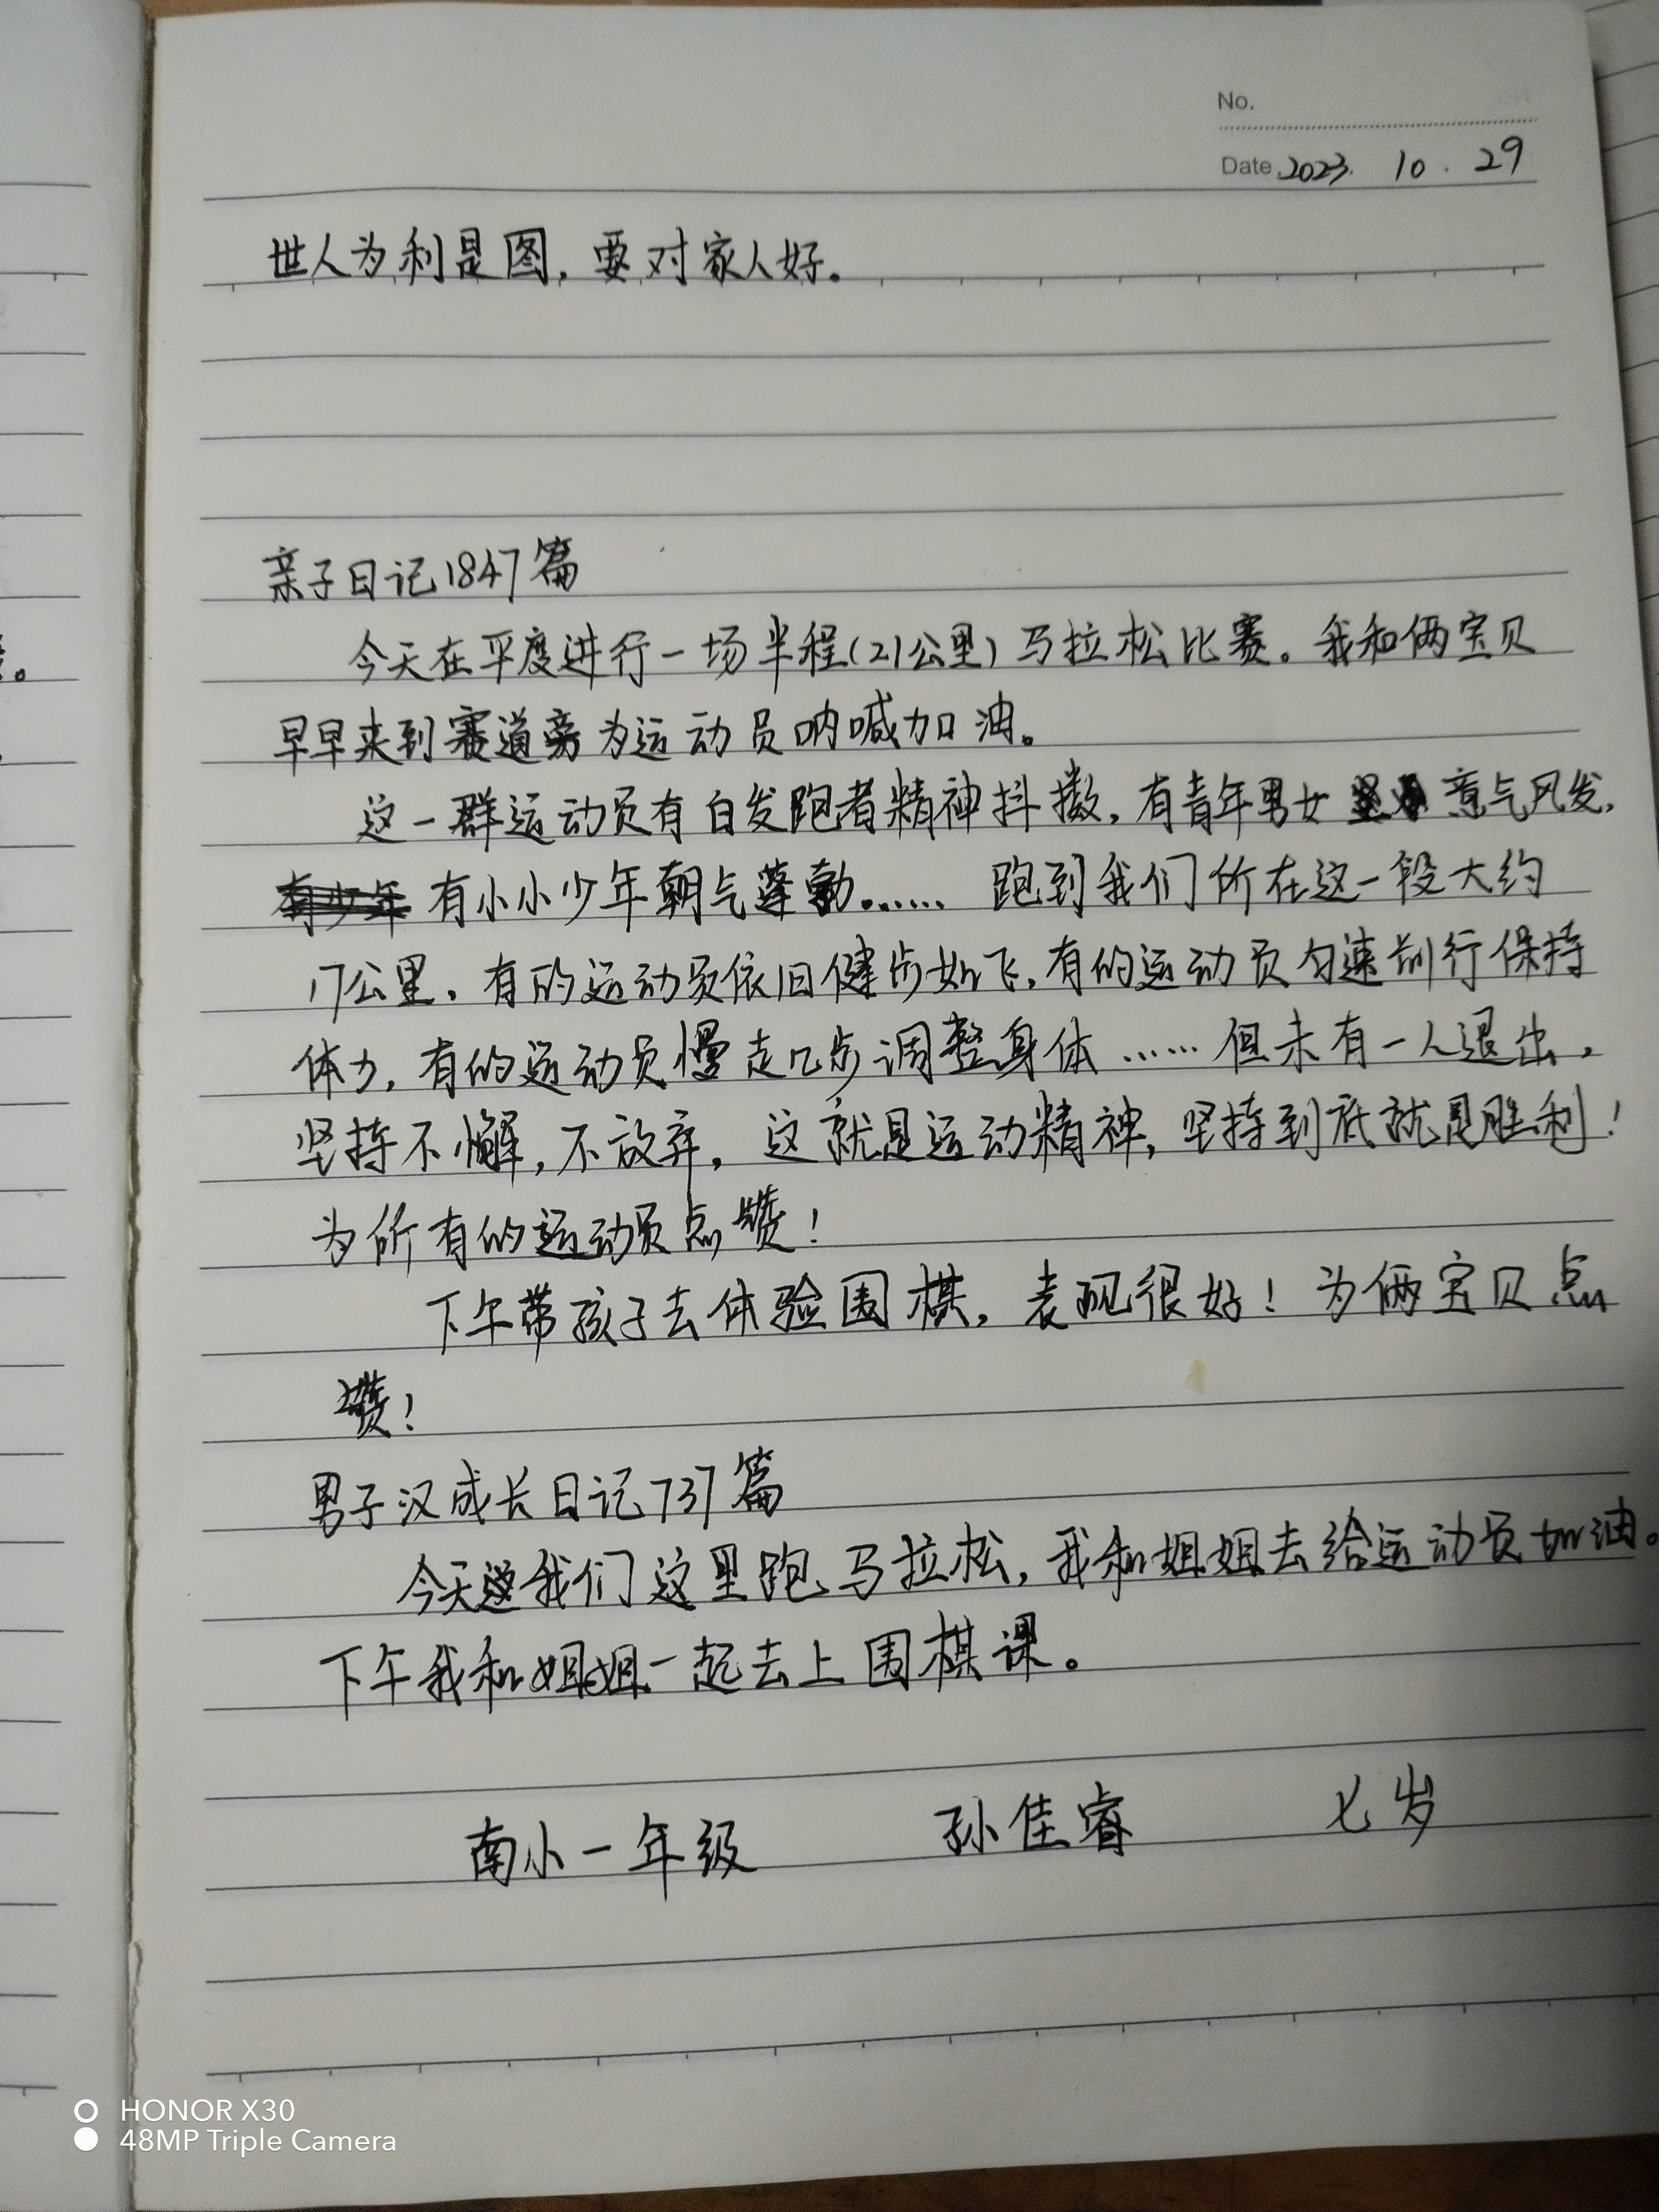 No.
Date 2023. 10. 29
世人为利是图，要对家人好。
亲子日记1847篇
今天在平度进行一场半程（21公里）马拉松比赛。我和俩宝贝
早早来到赛道旁为运动员呐喊加油。
这一群运动员有白发跑者精神抖擞，有青年男女意气风发，
有小小少年朝气蓬勃……跑到我们所在这一段大约
17公里，有的运动员依旧健步如飞，有的运动员匀速前行保持
体力，有的运动员慢走几步调整身体……但未有一人退出，
坚持不懈，不放弃，这就是运动精神，坚持到底就是胜利！
为所有的运动员点赞！
下午带孩子去体验围棋，表现很好！为俩宝贝点
赞！
男子汉成长日记737篇
今天我们这里跑马拉松，我和姐姐去给运动员加油。
下午我和姐姐一起去上围棋课。
南小一年级 孙佳睿 七岁
HONOR X30
48MP Triple Camera